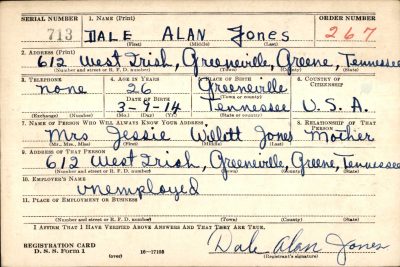 SERIAL NUMBER 1. NAME (Print) ORDER NUMBER
713 DALE ALAN Jones 267
(First) (Middle) (Last)
2. ADDRESS (Print)
612 West Irish, Greeneville, Greene, Tennessee
(Number and street or R. F. D. number) (Town) (County) (State)
3. TELEPHONE 4. AGE IN YEARS 5. PLACE OF BIRTH 6. COUNTRY OF CITIZENSHIP
none 26 Greeneville
DATE OF BIRTH (Town or county)
3-9-14 Tennessee U.S.A.
(Exchange) (Number) (Mo.) (Day) (Yr.) (State or country)
7. NAME OF PERSON WHO WILL ALWAYS KNOW YOUR ADDRESS 8. RELATIONSHIP OF THAT PERSON
Mrs Jessie Jones Mother
(Mr., Mrs., Miss) (First) (Middle) (Last)
9. ADDRESS OF THAT PERSON
612 West Irish, Greeneville, Greene, Tennessee
(Number and street or R. F. D. number) (Town) (County) (State)
10. EMPLOYER'S NAME
unemployed
11. PLACE OF EMPLOYMENT OR BUSINESS
(Number and street or R. F. D. number) (Town) (County) (State)
I AFFIRM THAT I HAVE VERIFIED ABOVE ANSWERS AND THAT THEY ARE TRUE.
REGISTRATION CARD
D. S. S. Form 1 (over) 16-17105 Dale Alan Jones
(Registrant's signature)